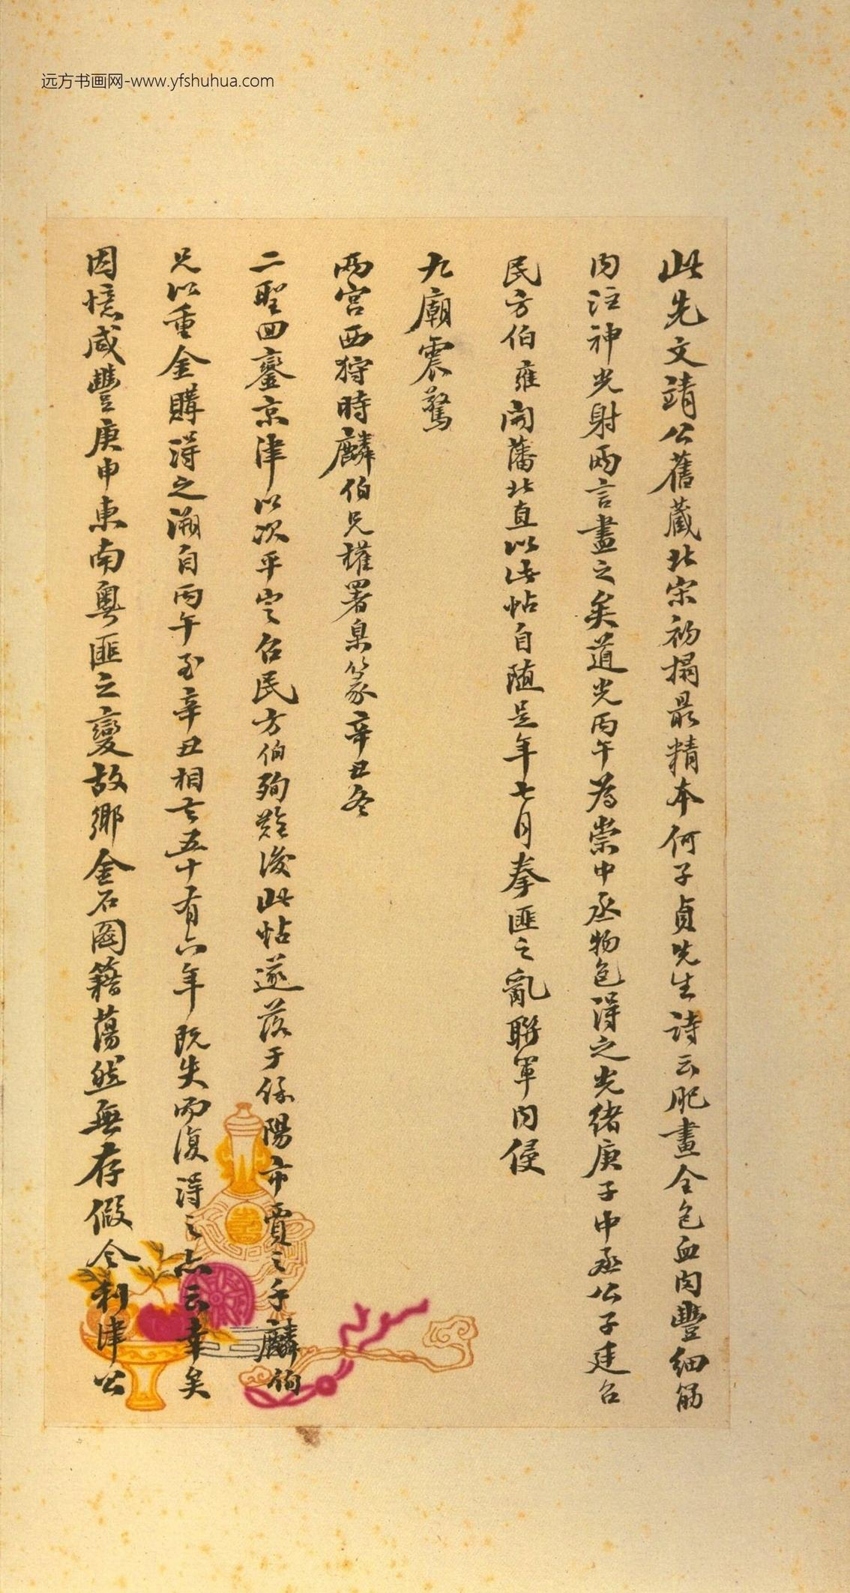 远方书画网-www.yfshuhua.com
此先文靖公舊藏北宋初搨最精本何子貞先生詩云肥畫全包血肉豐細筋
肉注神光射兩言盡之矣道光丙午為崇中丞物色得之光緒庚子中丞公子廷召
民方伯雍開藩北直以此帖自隨是年七月拳匪之亂聯軍内侵
九廟震驚
兩宮西狩時麟伯兄權署臬篆辛丑冬
二聖回鑾京津以次平定召民方伯殉難後此帖遂落于保陽市賈之手麟伯
兄以重金購得之溯自丙午至辛丑相去五十有六年既失而復得之亦云幸矣
因憶咸豐庚申東南粵匪之變故鄉金石圖籍蕩然無存假令利津公